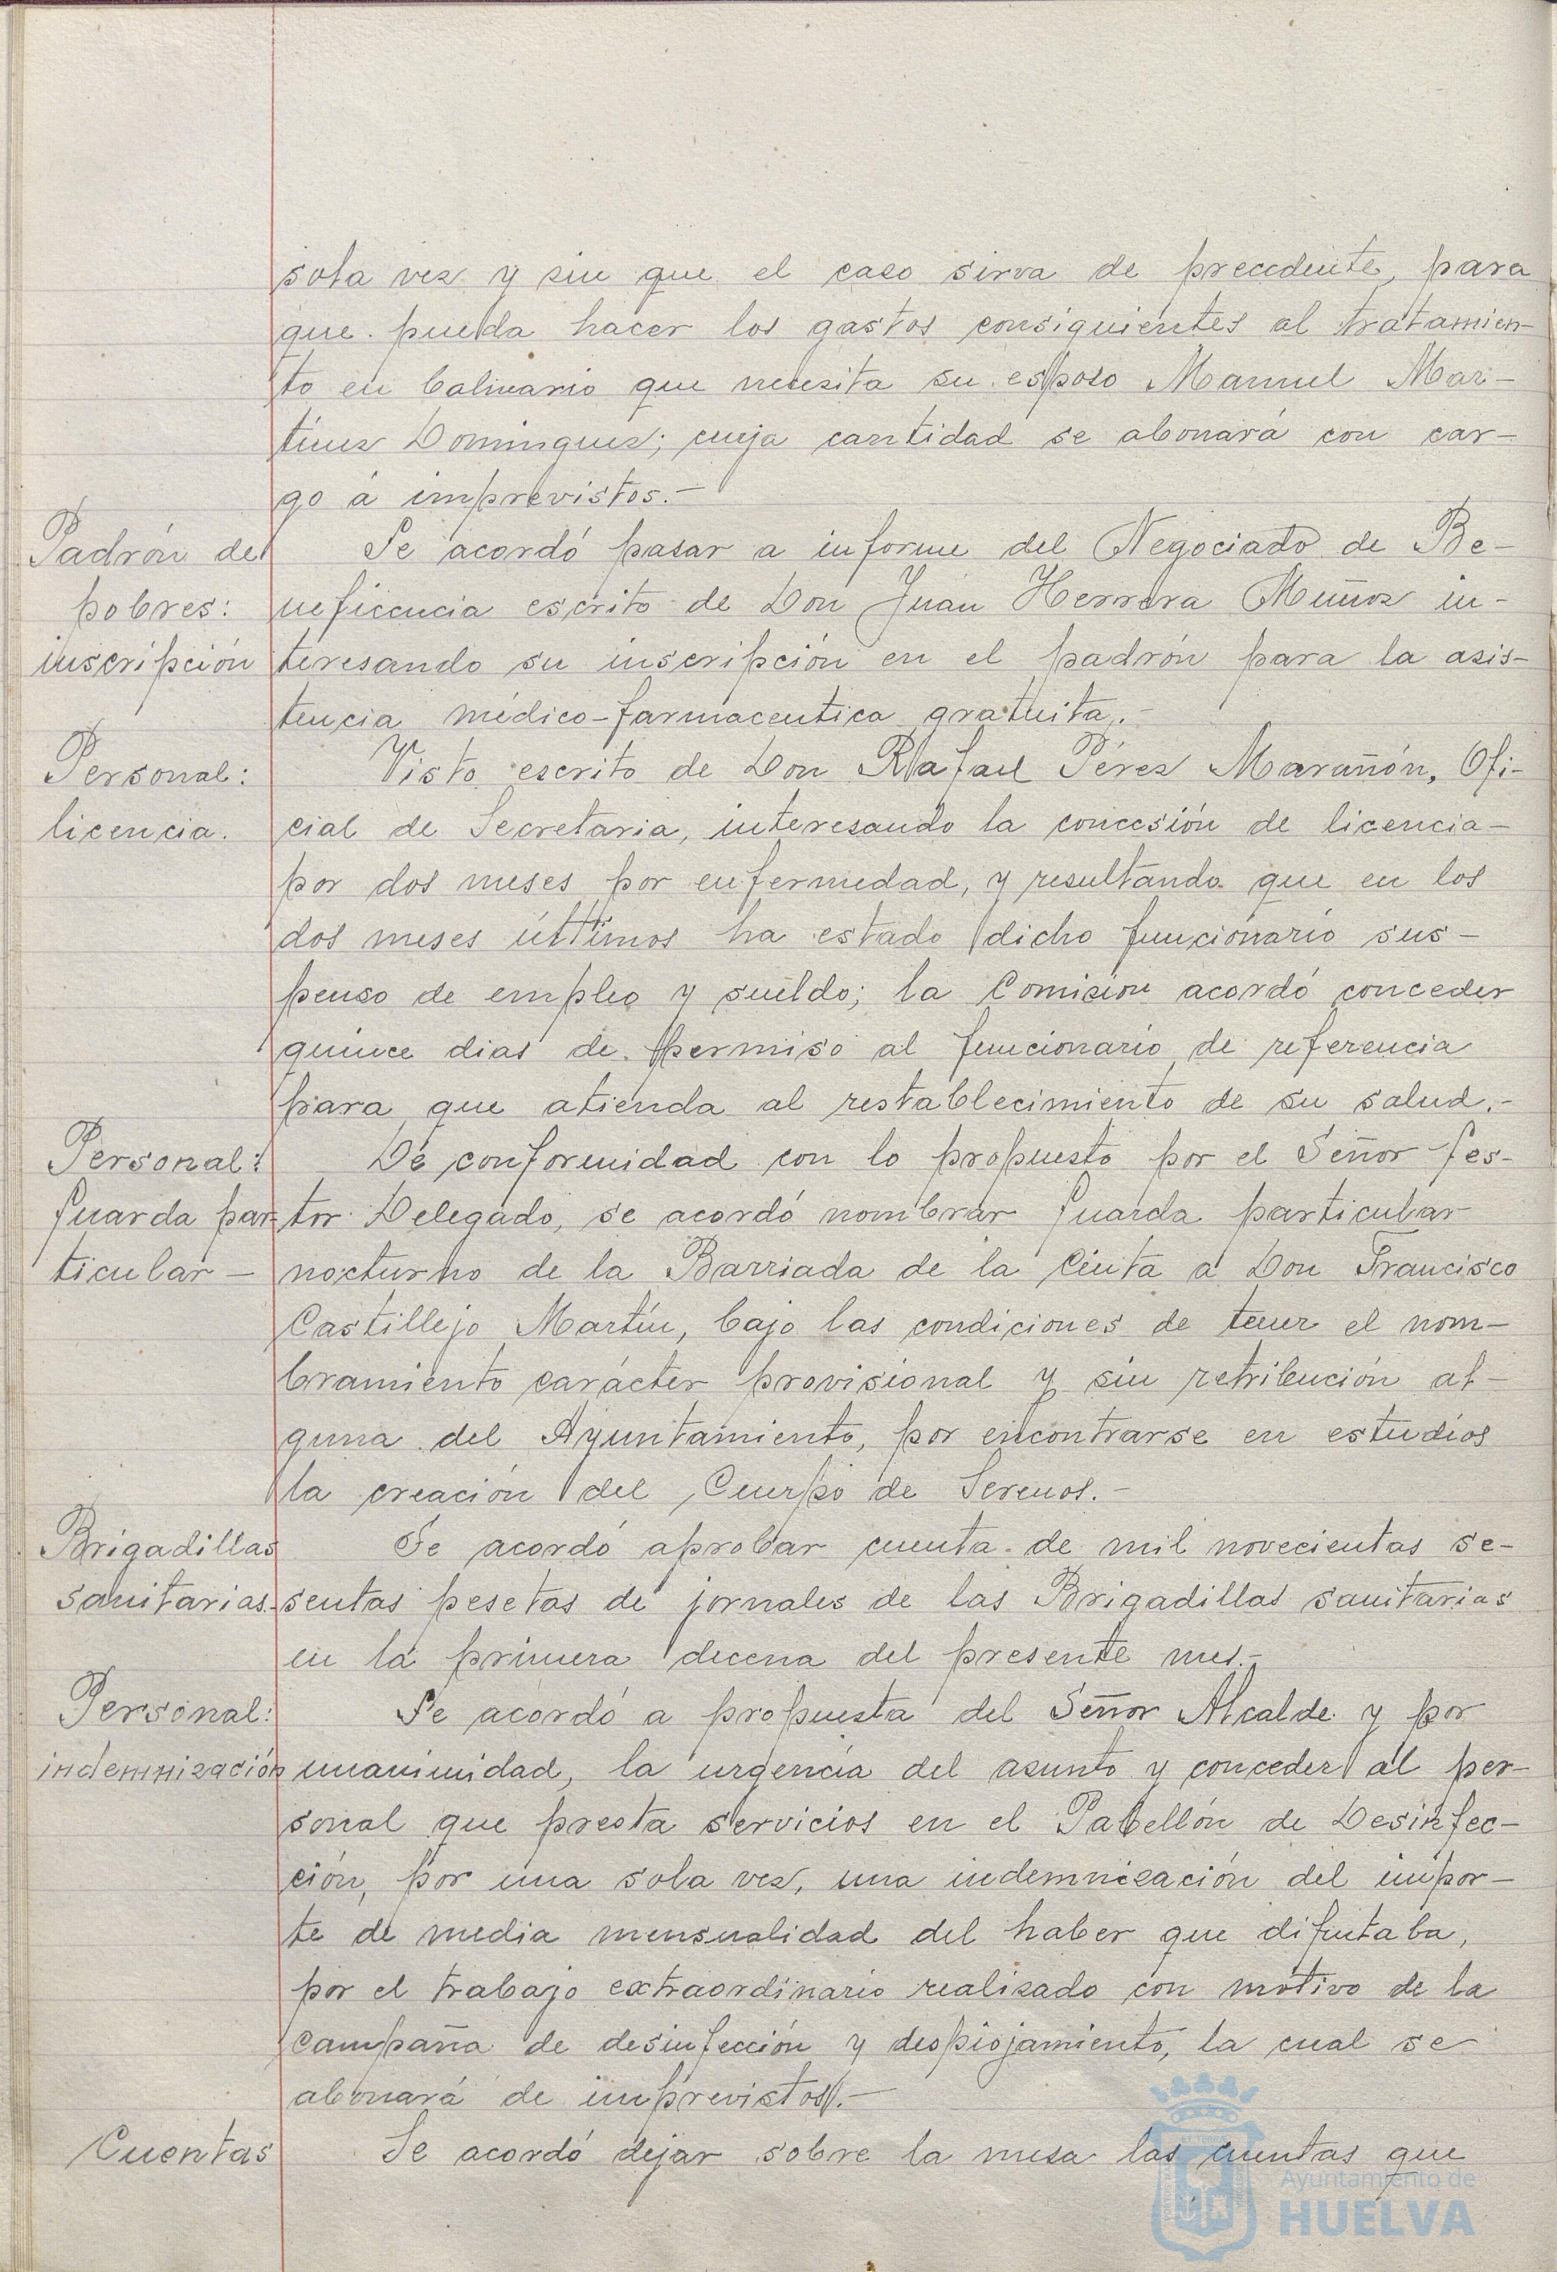 sola vez y sin que el caso sirva de precedente, para
que pueda hacer los gastos consiguientes al tratamien-
to en balneario que necesita su esposo Manuel Mar-
tínez Dominguez; cuya cantidad se abonará con car-
go á imprevistos.-
Padrón de
pobres:
inscripción
Se acordó pasar a informe del Negociado de Be-
neficencia escrito de Don Juan Herrera Muñoz in-
teresando su inscripción en el padrón para la asis-
tencia médico-farmaceutica gratuita.-
Personal:
licencia.
Visto escrito de Don Rafael Pérez Marañón, Ofi-
cial de Secretaria, interesando la concesión de licencia-
por dos meses por enfermedad, y resultando que en los
dos meses últimos ha estado dicho funcionario sus-
penso de empleo y sueldo; la Comisión acordó conceder
quince dias de permiso al funcionario de referencia
para que atienda al restablecimiento de su salud.-
Personal:
Guarda par-
ticular-
De conformidad con lo propuesto por el Señor Ges-
tor Delegado, se acordó nombrar Guarda particular
nocturno de la Barriada de la Cinta a Don Francisco
Castillejo Martín, bajo las condiciones de tener el nom-
bramiento carácter provisional y sin retribución al-
guna del Ayuntamiento, por encontrarse en estudios
la creación del Cuerpo de Serenos.-
Brigadillas
sanitarias.
Se acordó aprobar cuenta de mil novecientas se-
sentas pesetas de jornales de las Brigadillas sanitarias
en la primera decena del presente mes.-
Personal:
indemnización
Se acordó a propuesta del Señor Alcalde y por
unanimidad, la urgencia del asunto y conceder al per-
sonal que presta servicios en el Pabellón de Desinfec-
ción, por una sola vez, una indemnización del impor-
te de media mensualidad del haber que difrutaba,
por el trabajo extraordinario realizado con motivo de la
campaña de desinfección y despiojamiento, la cual se
abonará de imprevistos.-
Cuentas
Se acordó dejar sobre la mesa las cuentas que
Ayuntamiento de
HUELVA